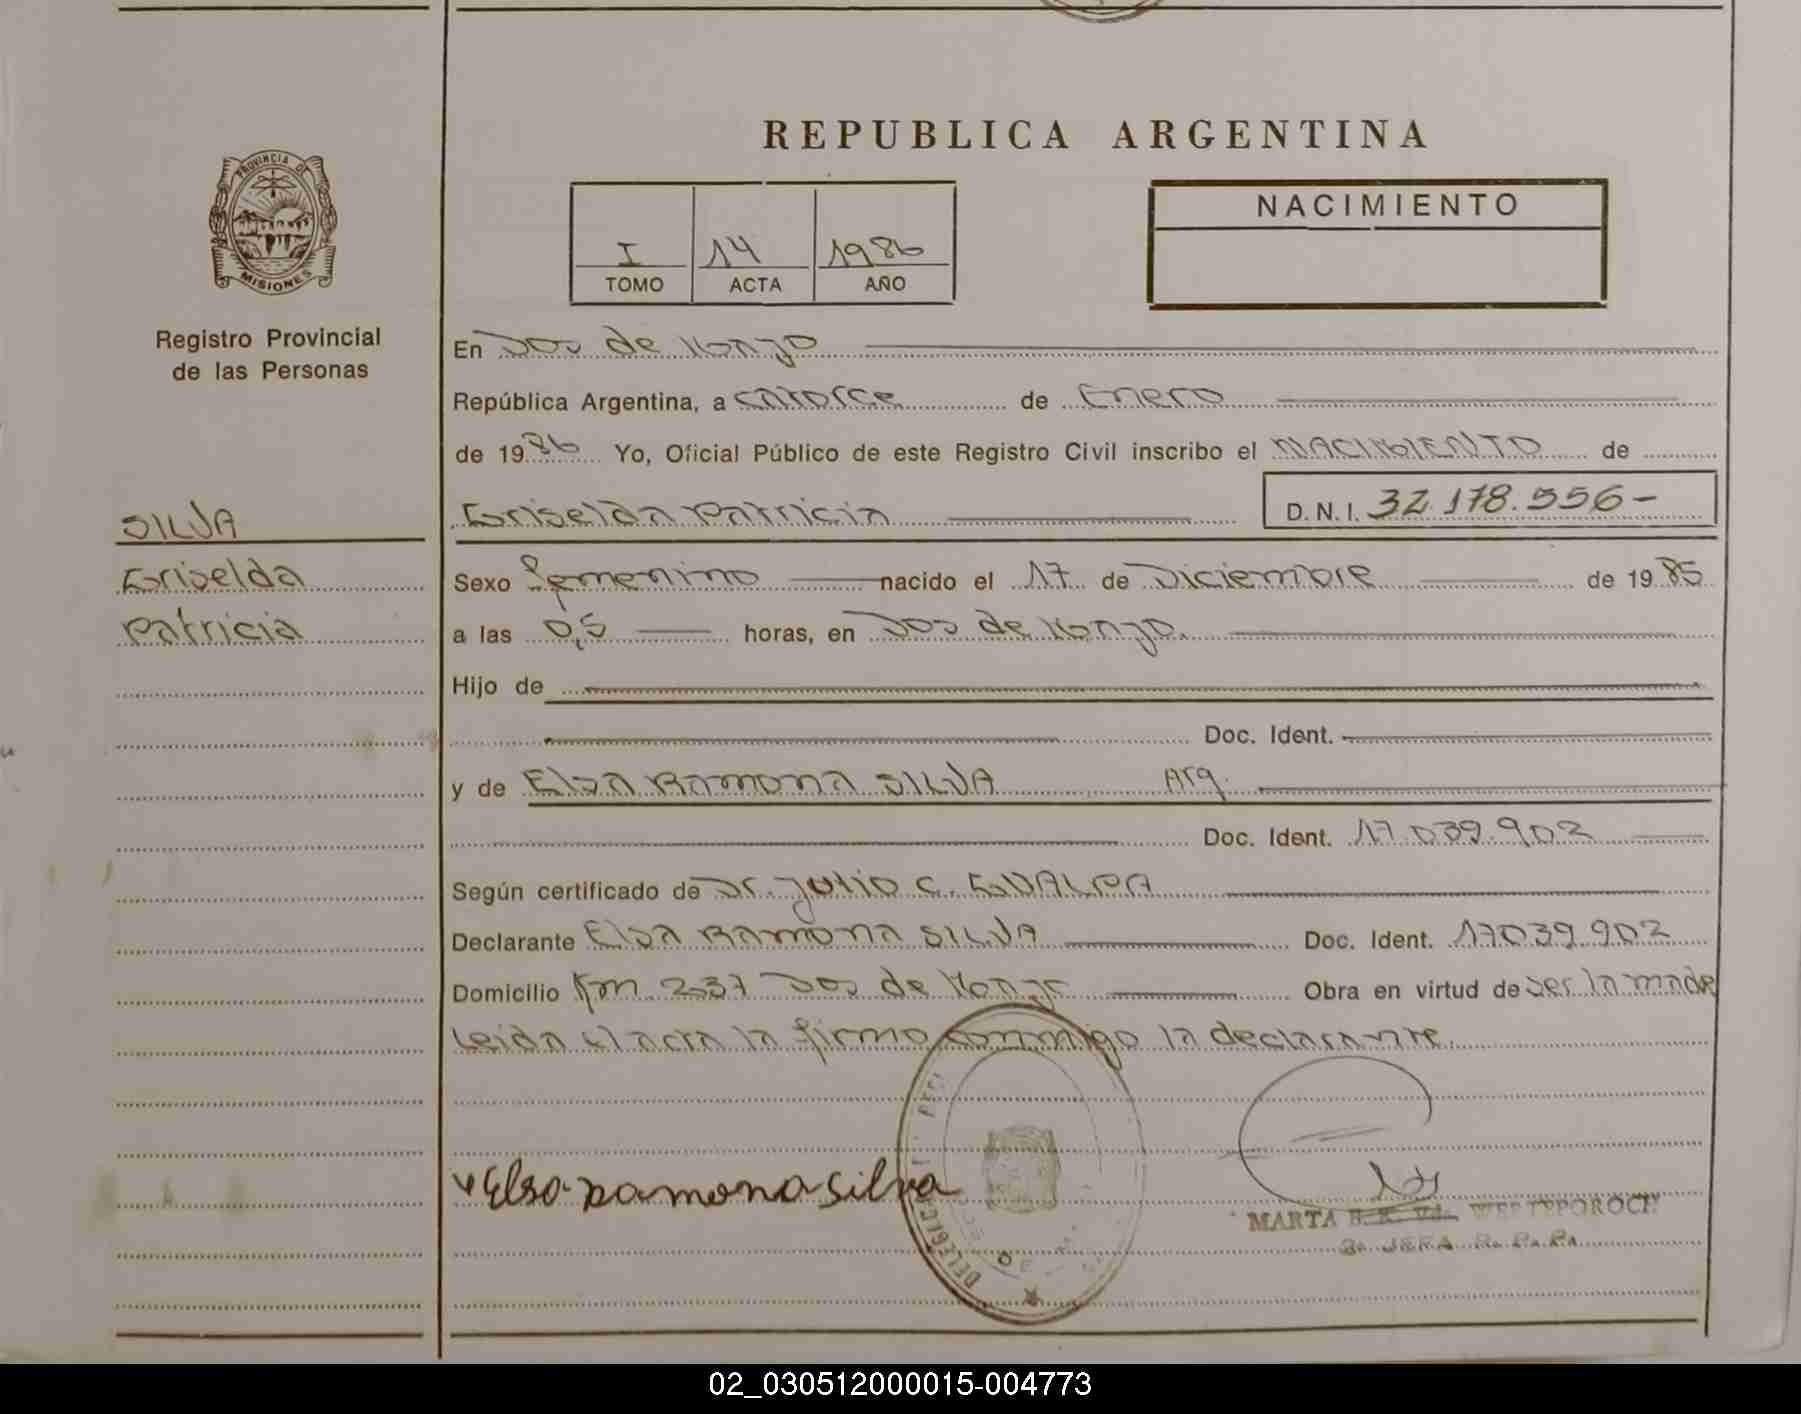 REPUBLICA ARGENTINA
PROVINCIA DE
MISIONES
Registro Provincial
de las Personas
I 14 1986
TOMO ACTA AÑO
NACIMIENTO
En Dos de Mayo
República Argentina, a catorce de Enero
de 1986 Yo, Oficial Público de este Registro Civil inscribo el NACIMIENTO de
SILVA
Griselda
Patricia
Griselda Patricia D.N.I. 32.178.556-
Sexo femenino nacido el 17 de Diciembre de 1985
a las 0,5 horas, en Dos de Mayo.
Hijo de
Doc. Ident.
y de Elsa Ramona SILVA Arg.
Doc. Ident. 17.039.902
Según certificado de Dr. Julio C. GUALPA
Declarante Elsa Ramona SILVA Doc. Ident. 17039.902
Domicilio Km. 237 Dos de Mayo Obra en virtud de ser la madre
Leida el acta la firmo conmigo la declarante.
Elsa Ramona Silva
MARTA
JEFA R. P. P.
02_030512000015-004773